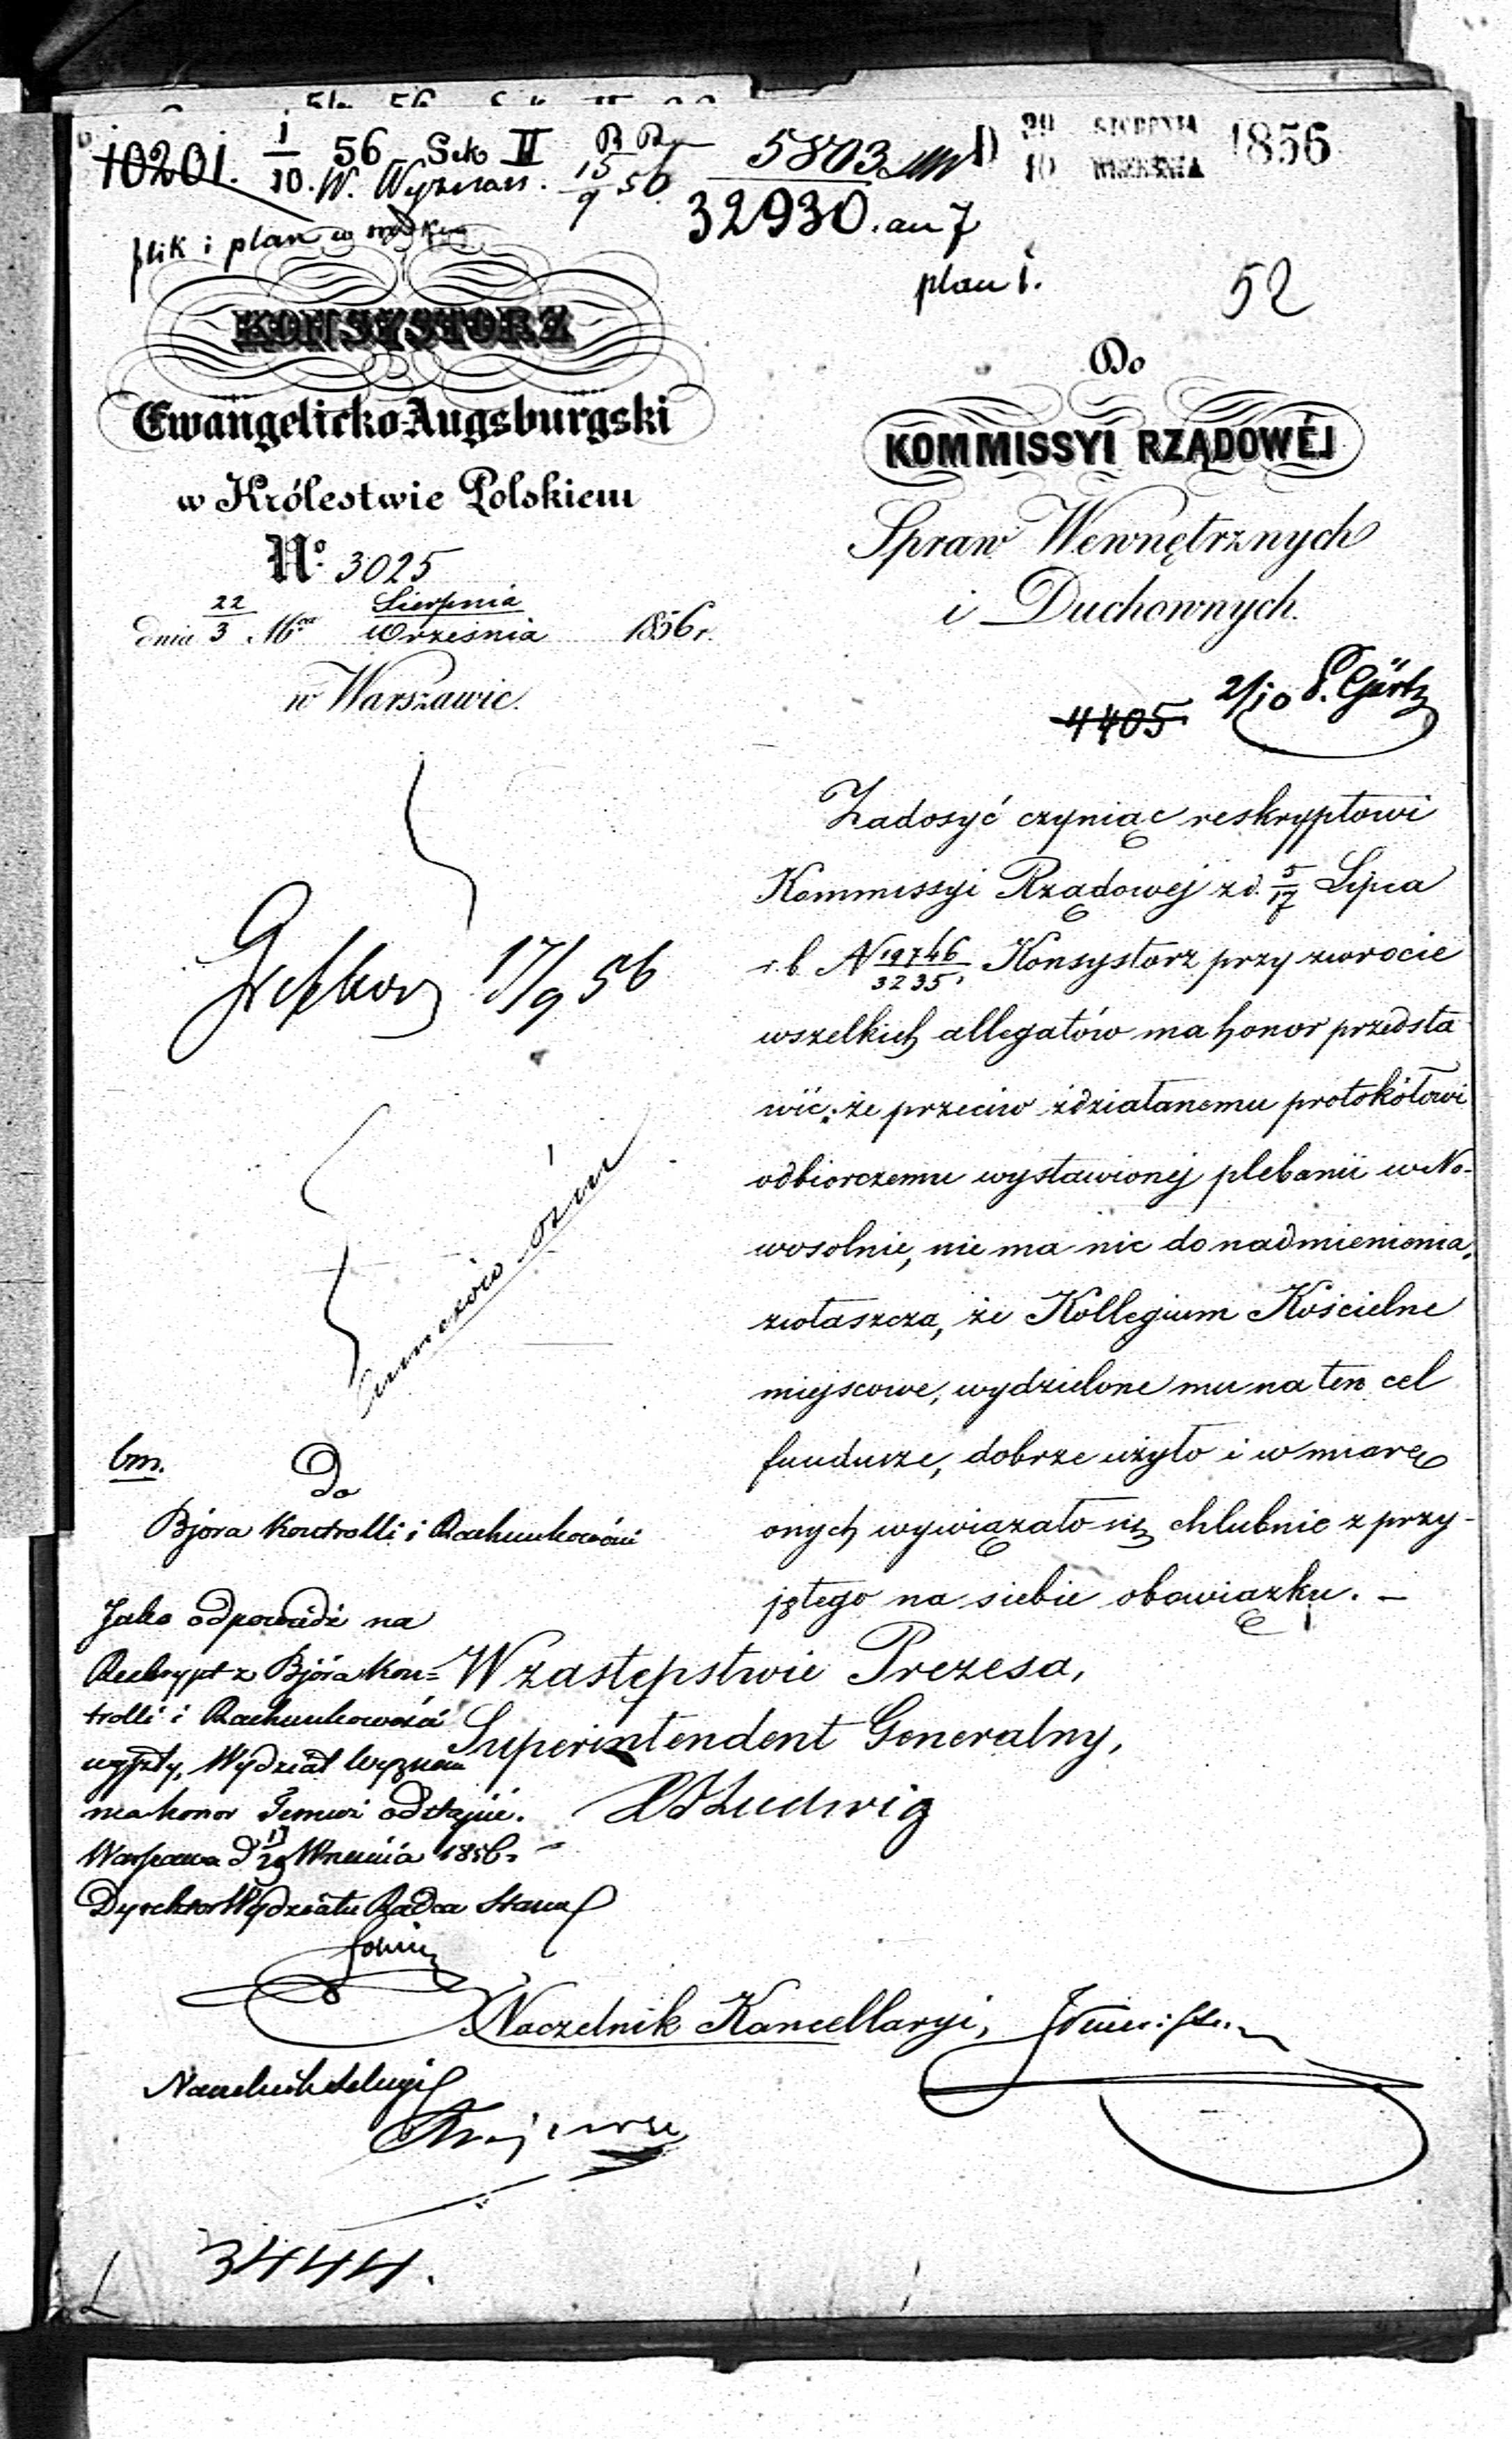 10201. 1/10. 56 Sek II
W. Wyznań. 15/9 56
5803
32930. an 7
29 SIERPNIA
10 WRZEŚNIA 1856
plik i plan w środku
plan 1.
52
KONSYSTORZ
Ewangelicko-Augsburgski
w Królestwie Polskiem
No. 3025
dnia 22/3 Mca Sierpnia/Września 1856 r.
w Warszawie.
Do
KOMMISSYI RZĄDOWÉJ
Spraw Wewnętrznych
i Duchownych.
4405
2/10 P. Görtz
Zadosyć czyniąc reskryptowi
Kommissyi Rządowej z d. 5/17 Lipca
r. b. N 19746/3235, Konsystorz przy zwrocie
wszelkich allegatów ma honor przedsta
wić, że przeciw zdziałanemu protokółowi
odbiorczemu wystawionej plebanii w No-
wosolnie, nie ma nic do nadmienienia,
zwłaszcza, że Kollegium Kościelne
miejscowe, wydzielone mu na ten cel
fundusze, dobrze użyło i w miarę
onych wywiązało się chlubnie z przy-
jętego na siebie obowiązku. –
W zastępstwie Prezesa,
Superintendent Generalny,
Ludwig
Naczelnik Kancellaryi,
17/9 56
bm.
Do
Bjóra Kontrolli i Rachunkowości
Jako odpowiedź na
Reskrypt z Bjóra Kon=
trolli i Rachunkowości
wyszły, Wydział Wyznań
ma honor Temuż odstąpić.
Warszawa d 17/29 Września 1856 r.
Dyrektor Wydziału Radca Stanu
Naczelnik Sekcyi
3444.